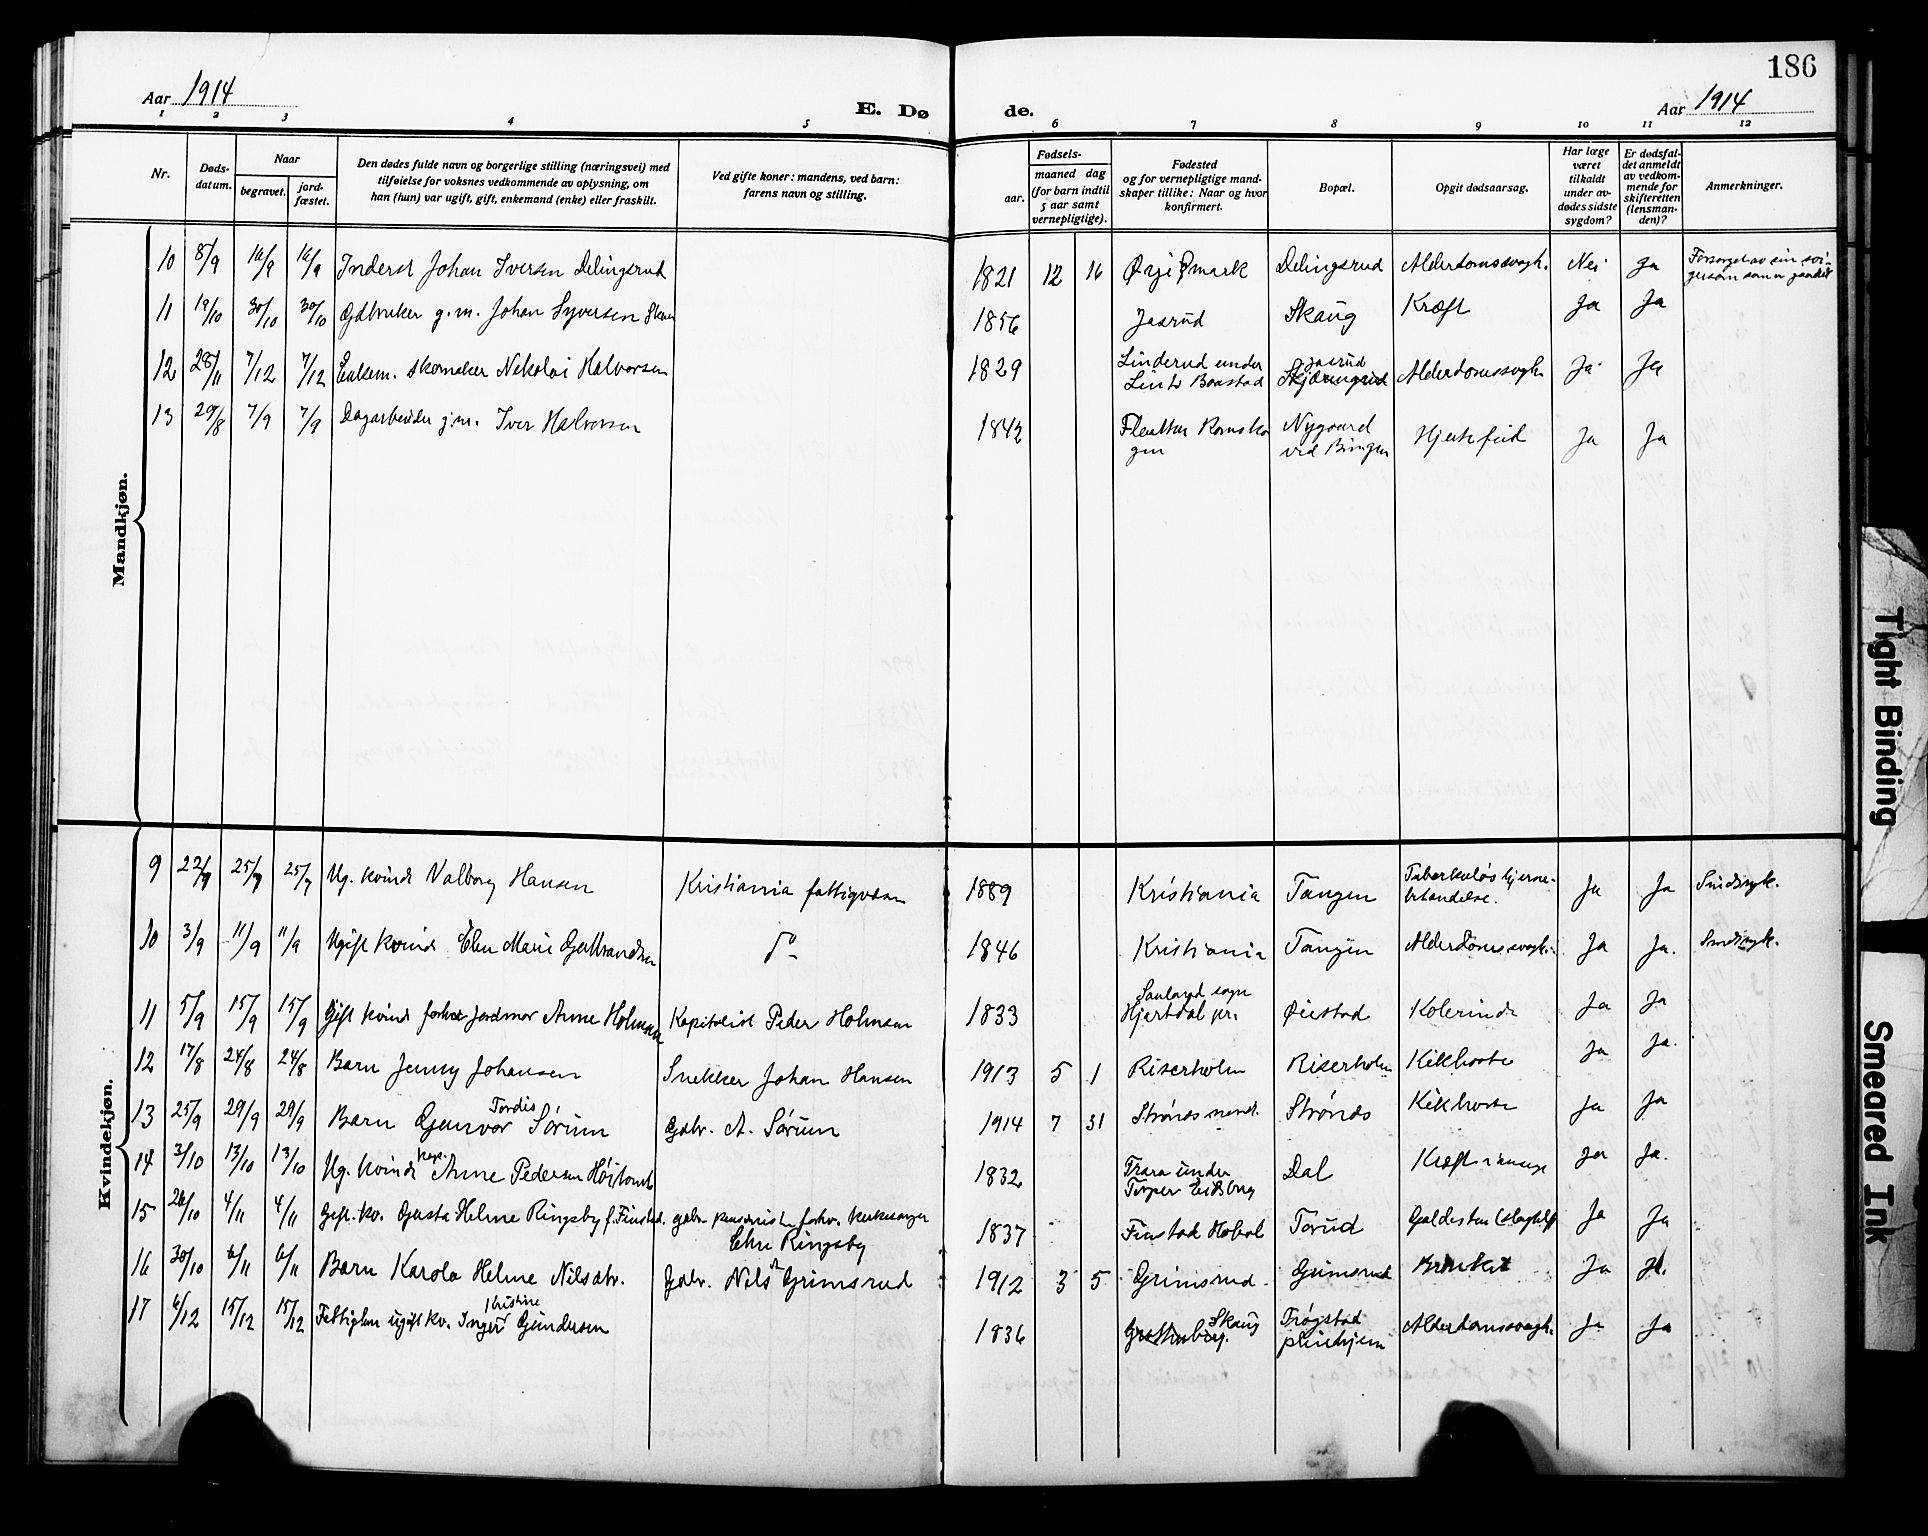 186
Aar 1914
E. Dø
de.
Aar 1914
1 2 3 4 5 6 7 8 9 10 11 12
Nr.
Døds-
datum.
Naar
begravet.
jord-
fæstet.
Den dødes fulde navn og borgerlige stilling (næringsvei) med
tilføielse for voksnes vedkommende av oplysning, om
han (hun) var ugift, gift, enkemand (enke) eller fraskilt.
Ved gifte koner: mandens, ved barn:
farens navn og stilling.
Fødsels-
aar.
maaned dag
(for barn indtil
5 aar samt
vernepligtige).
Fødested
og for vernepligtige mand-
skaper tillike: Naar og hvor
konfirmert.
Bopæl.
Opgit dødsaarsag.
Har læge
været
tilkaldt
under av-
dødes sidste
sygdom?
Er dødsfal-
det anmeldt
av vedkom-
mende for
skifteretten
(lensman-
den)?
Anmerkninger.
Mandkjøn.
10 8/9 16/9 16/9 Inderst Johan Iversen Delingsrud 1821 12 16 Ørje Ømark Delingsrud Alderdomssvagh. Nei Ja Forsørget av sin svi-
gersøn som er gaardbr.
11 19/10 30/10 30/10 Gdbruker g.m. Johan Syversen Skaug 1856 Jaarud Skaug Kræft Ja Ja
12 28/11 7/12 7/12 Enkem. skomaker Nikolai Halvorsen 1829 Linderud under Jaarud
Alderdomssvagh. Ja Ja
13 29/8 7/9 7/9 Dagarbeider g.m. Iver Halvorsen 1842 Romsko
gen Nygaard
ved Bingen Hjertefeil Ja Ja
Kvindekjøn.
9 22/7 25/7 25/7 Ug. kvinde Valborg Hansen Kristiania fattigvæsen 1889 Kristiania Tangen Tuberkuløs hjerne-
betændelse. Ja Ja Sindssyk.
10 3/9 11/9 11/9 Ugift kvinde Elen Marie Gulbrandsen do 1846 Kristiania Tangen Alderdomssvagh. Ja Ja. Sindssyk.
11 5/9 15/9 15/9 Gift kvinde forhv. jordmor Anne Holmsen Kapitalist Peder Holmsen 1833 Sauland sogn
Hjertdal pr. Øiestad Kolerine Ja Ja
12 17/8 24/8 24/8 Barn Jenny Johansen Snekker Johan Hansen 1913 5 1 Riserholm Riserholm Kikhoste Ja Ja.
13 25/9 29/9 29/9 Barn Gunvor Tordis Sørum Gdbr. A. Sørum 1914 7 31 Strønes Kikhoste Ja Ja
14 3/10 13/10 13/10 Ug. kvinde Anne Pedersen Høitomt 1832 under
Eidsberg Dal Kræft Ja Ja.
15 26/10 4/11 4/11 Gift. kv. Gusta Helene Ringsby f. Finstad. forhv. kirkesanger
Ringsby 1837 Finstad Hobøl Torud Galdesten Ja Ja
16 30/10 6/11 6/11 Barn Karola Helene Nilsdtr. Gdbr. Nils Grimsrud 1912 3 5 Grimsrud Grimsrud Bronkit Ja Ja.
17 6/12 15/12 15/12 Fattiglem ugift kv. Inger Kristine Gundersen 1836 Skaug Trøgstad
pleiehjem Alderdomssvagh. Ja Ja
Tight Binding
Smeared Ink